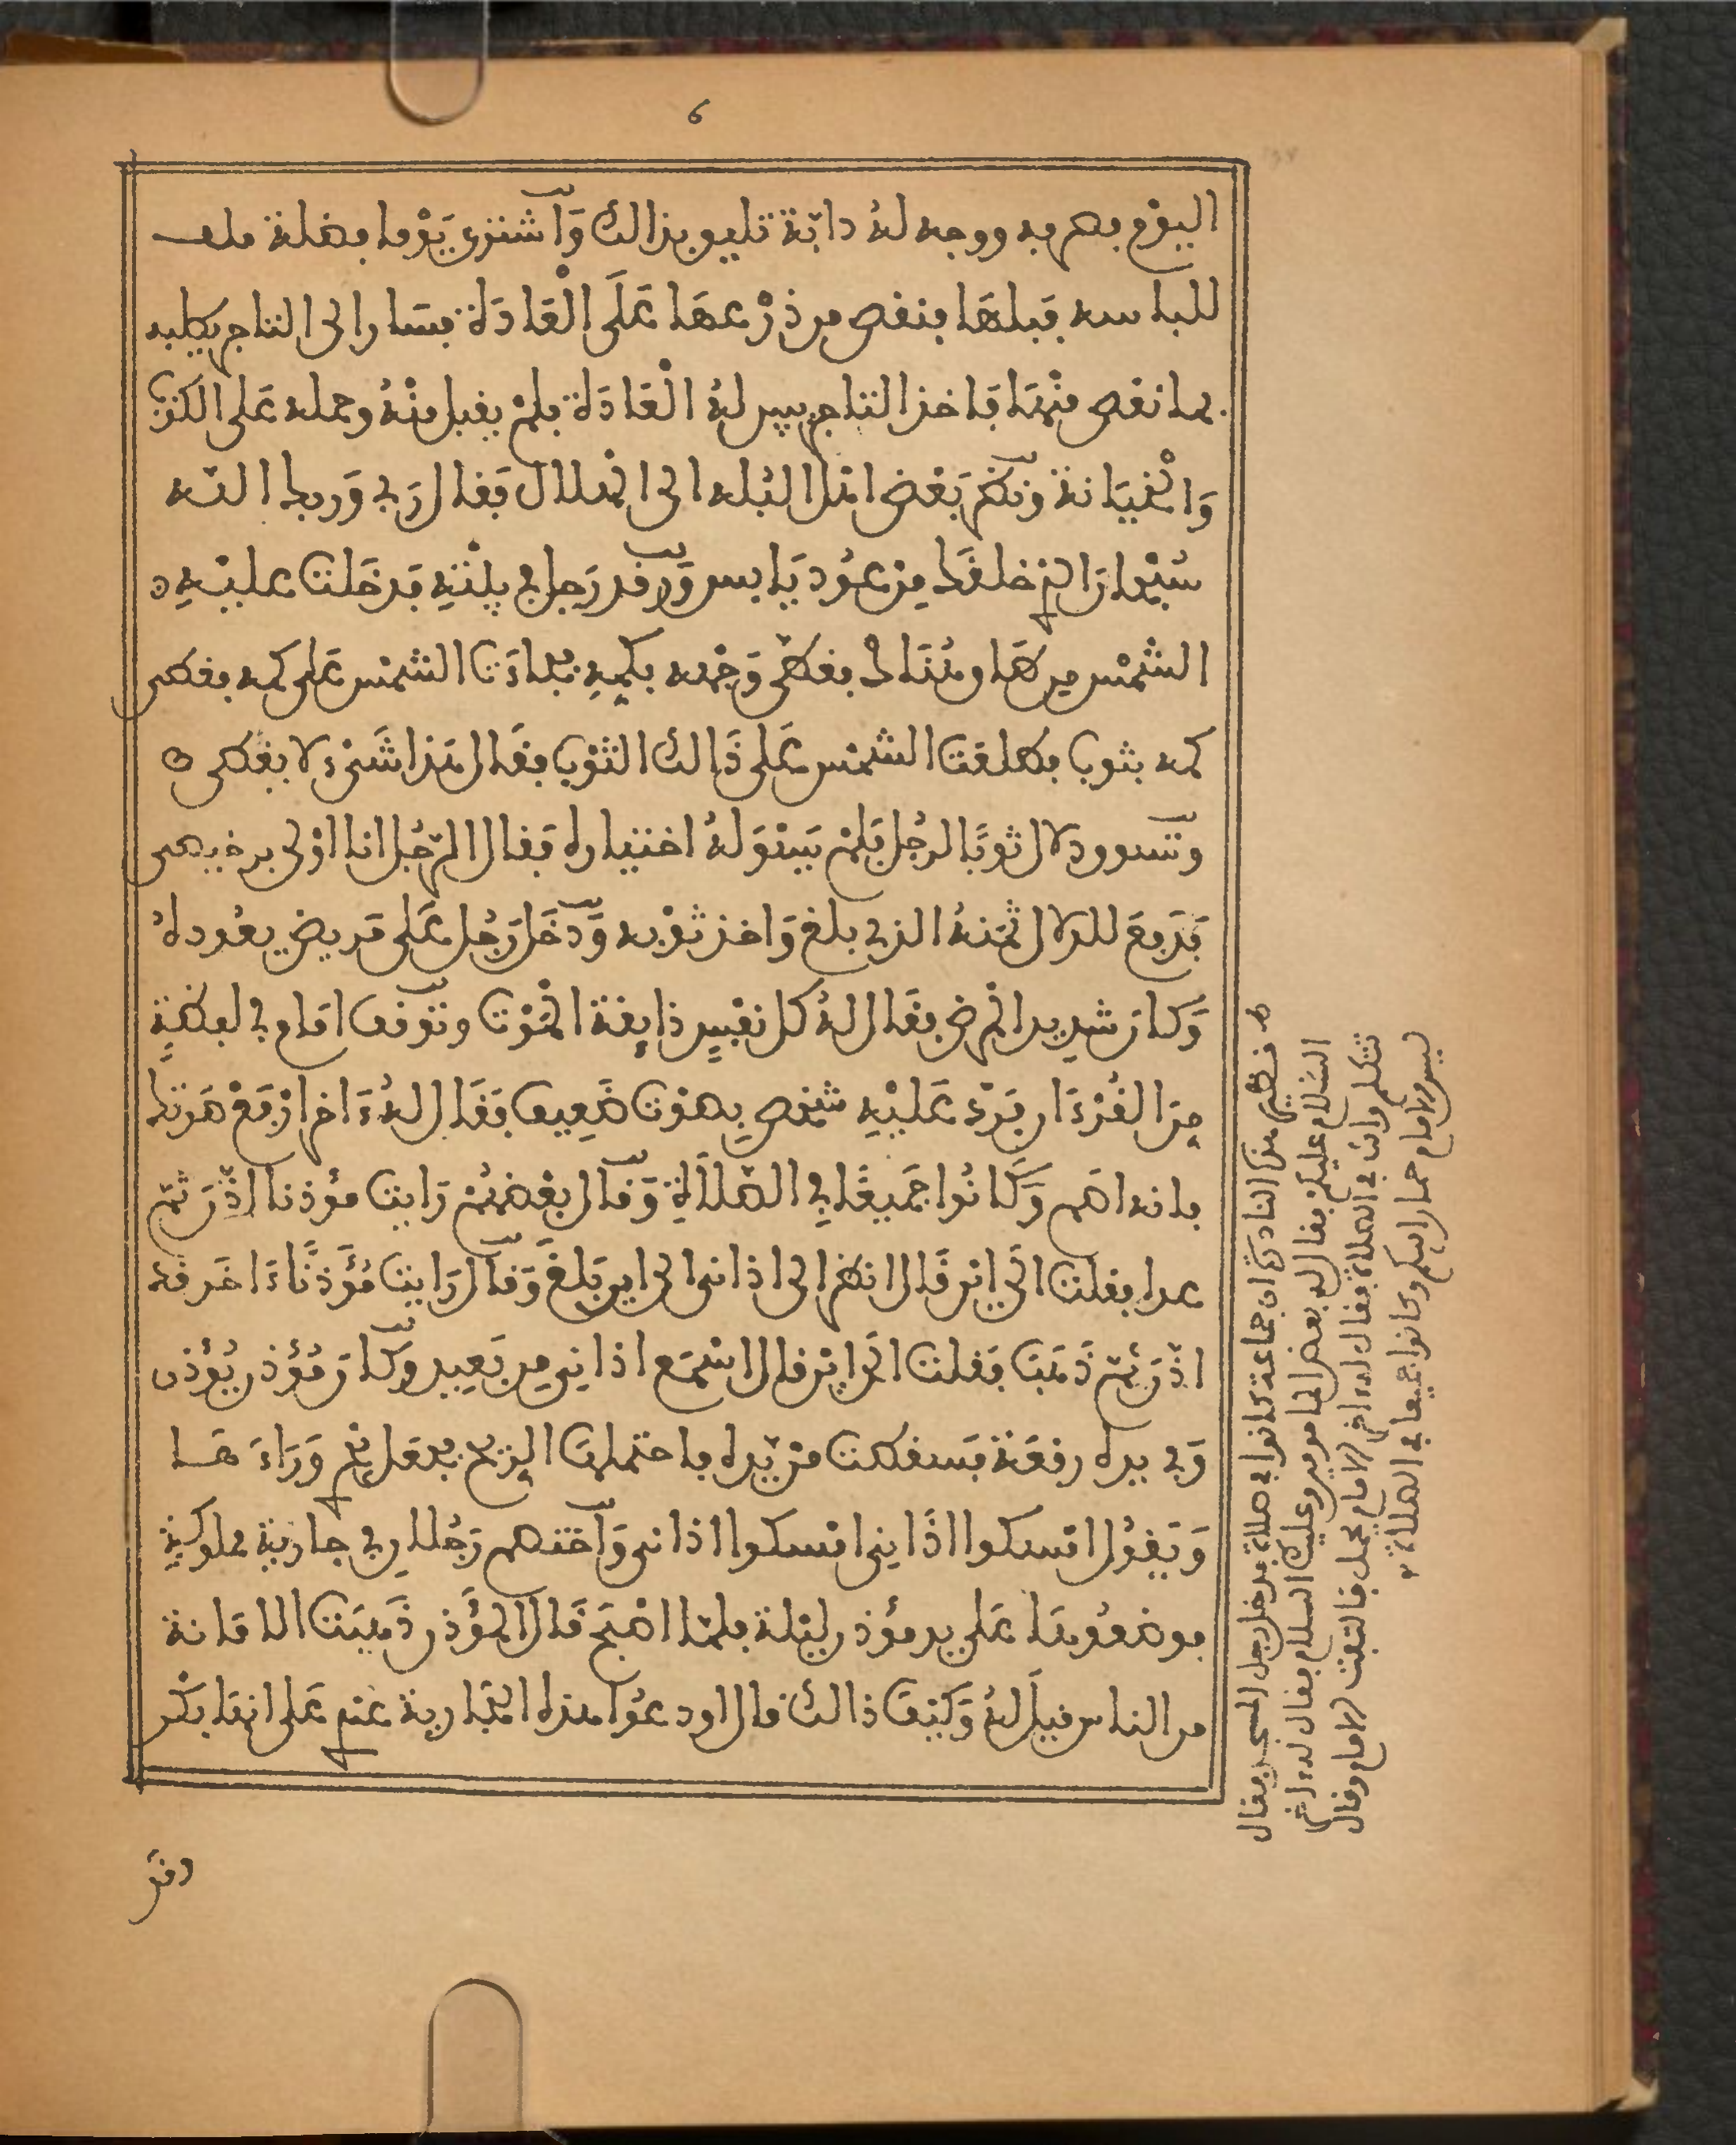 6
اليوم بصر به ووجه له دابة تليق بذالك وَاشترى يَوْما بضلة ملف
للباسه فبلها فنقص من ذرْعها عَلَى الْعَادَة فسَار الى التاجر يطلبه
بما نقص منْها فاخذ التاجر يبين له الْعَادَة فلمْ يقبل منْهُ وحمله عَلى الكذب
وَالْخيَانة ونظر بَعْض اهل البُله الى الهلال فَقال رَبي وَربك الله
سُبْحَارَ الذي خلقَك مِنْ عُود يَابس وَرقد رَجل في بيْتِهِ فدخَلت عليْهِ
الشمْس من هَا وتَنَادى فغطى وَجْهه بكمِهِ فجاءَت الشمْس عَلى كمه فغطى
كمه بثوب فطلعَت الشمْس عَلى ذَالك الثوْب فقَال هَذا شَىْء لا يغطى
وتسوق دلال ثوبًا لرجُل فَلمْ يَسْوَ لهُ اختياره فَقال الرّجُل انا اوْلى به
فَدَفعَ للدلال ثمَنهُ الذي بلغ وَاخذ ثوْبه وَدخَل رَجُل عَلى مَريض يعُوده
وَكان شدِيد المرض فقَال لهُ كل نفْسٍ ذايِقة الموْت وتوقف امَام في لفظةٍ
مِنَ القُرْءَان فرَدّ عَليْهِ شخص بِصَوْت ضَعِيف فقَال لهُ ءَاخر ارْفعْ صَوْتك
فانه اصم وَكَانُوا جَميعًا فِي الصّلَاةِ وَقال بعْضهُمْ رَايت مؤذنا اذّنَ ثمّ
عدا فقلت الى ايْن قَال انظر الى اذاني الى اين يَبلغ وَقال رَايت مُؤَذّنًا ءَاخَر قد
اذّنَ ثمّ ذَهَبَ فقلت الى ايْن قال اسْمَع اذاني مِن بَعِيد وَكانَ مُؤذن يُؤذن
وَفي يده رقعَة فسَقطت مِنْ يَده فاحتملت الرّيح فجعل يَجْرِي وَرَاءَ هَا
وَيَقُول امْسكوا اذَانِي امْسكوا اذاني وَاختصم رَجُلان في جارية مملوكة
فوضعُوهَا عَلى يد مؤذن ليْلة فلمّا اصْبَح قَال المؤَذن ذَهبَت الامَانة
من الناس قيل لهُ وَكيْفَ ذالك قال اودعوُا هذه الجارية عندي عَلى انهَا بكْر
وقد
طـ فـ نظير هذه النادرة ان جماعة كانوا في صلاة فدخل رجل المسجد فقال
السلام عليكم فقال له بعض المامومين وعليك السلام فقال له ءاخر
تتكلم وانت في الصلاة فقال له ءاخر الامام يحمل فالتفت الامام وقال
ليس الامام حمارا لكم وكانوا جميعا في الصلاة